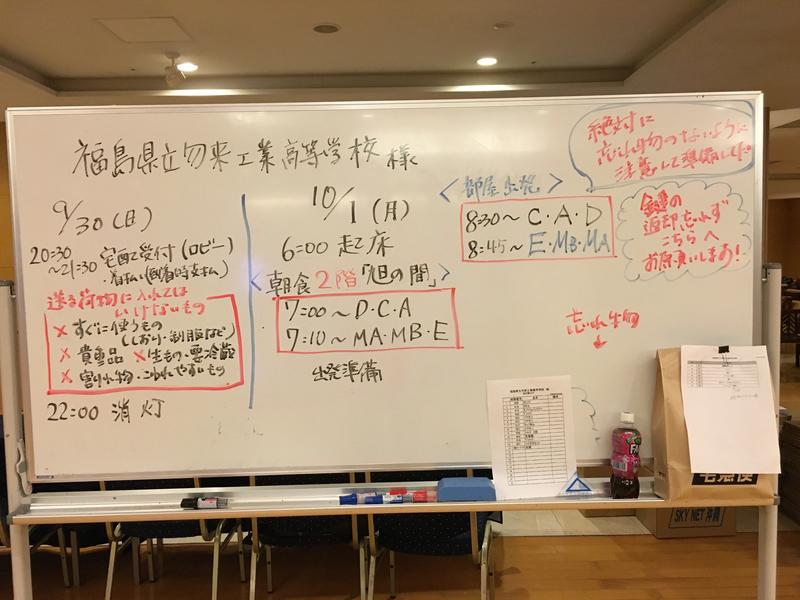 福島県立勿来工業高等学校 様
9/30(日)
20:30
~21:30 宅配受付(ロビー)
・着払い(到着時支払)
送る荷物に入れては
いけないもの
× すぐに使うもの
(しおり・制服など)
× 貴重品 × 生もの・要冷蔵
× 割れ物・こわれやすいもの
22:00 消灯
10/1(月)
6:00 起床
<朝食 2階「旭の間」>
7:00~D・C・A
7:10~MA・MB・E
出発準備
<部屋出発>
8:30~C・A・D
8:45~E・MB・MA
絶対に
忘れ物のないように
注意して準備して下
鍵の
返却忘れず
こちらへ
お願いします!
忘れ物
↓
宅急便
SKY NET 沖縄